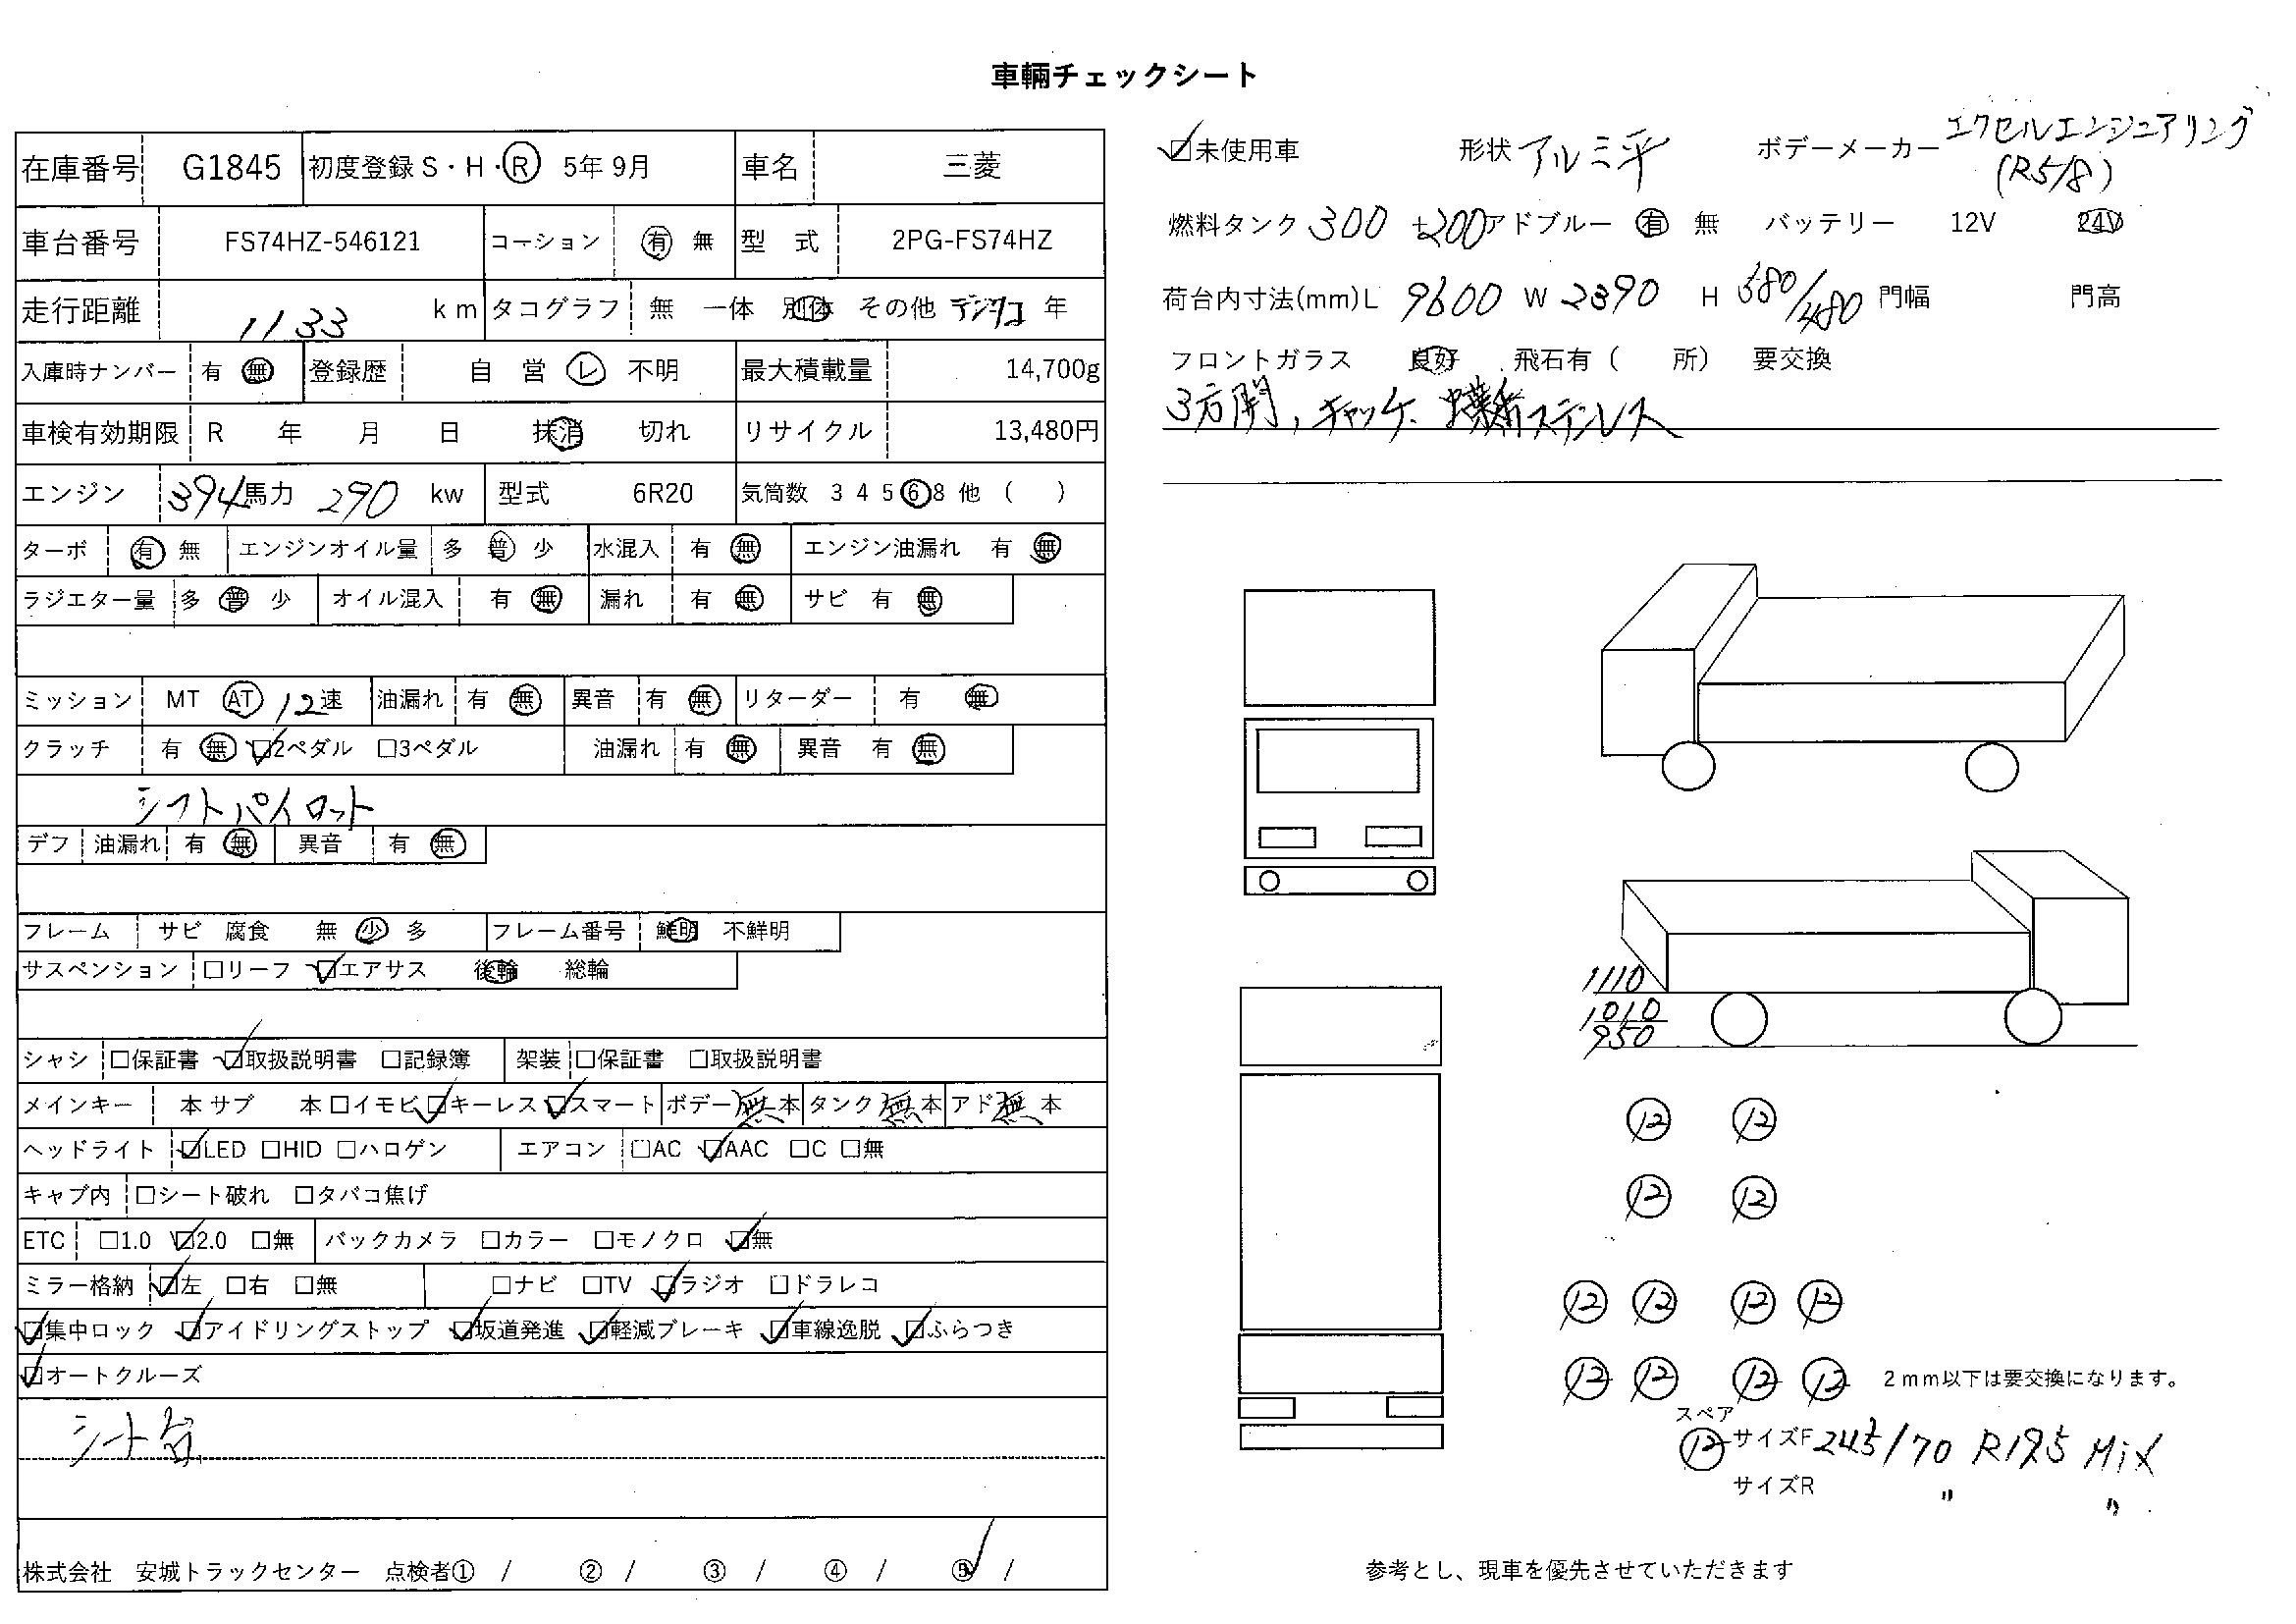 車輛チェックシート
在庫番号 G1845 初度登録 S・H・R 5年 9月 車名 三菱
車台番号 FS74HZ-546121 コーション 有 無 型 式 2PG-FS74HZ
走行距離 1133 km タコグラフ 無 一体 別体 その他 デジタコ 年
入庫時ナンバー 有 無 登録歴 自 営 レ 不明 最大積載量 14,700g
車検有効期限 R 年 月 日 抹消 切れ リサイクル 13,480円
エンジン 394馬力 290 kw 型式 6R20 気筒数 3 4 5 6 8 他 ( )
ターボ 有 無 エンジンオイル量 多 普 少 水混入 有 無 エンジン油漏れ 有 無
ラジエター量 多 普 少 オイル混入 有 無 漏れ 有 無 サビ 有 無
ミッション MT AT 12速 油漏れ 有 無 異音 有 無 リターダー 有 無
クラッチ 有 無 □2ペダル □3ペダル 油漏れ 有 無 異音 有 無
シフトパイロット
デフ 油漏れ 有 無 異音 有 無
フレーム サビ 腐食 無 少 多 フレーム番号 鮮明 不鮮明
サスペンション □リーフ □エアサス 後輪 総輪
シャシ □保証書 □取扱説明書 □記録簿 架装 □保証書 □取扱説明書
メインキー 本 サブ 本 □イモビ □キーレス □スマート ボデー無本 タンク無本 アド無本
ヘッドライト □LED □HID □ハロゲン エアコン □AC □AAC □C □無
キャブ内 □シート破れ □タバコ焦げ
ETC □1.0 □2.0 □無 バックカメラ □カラー □モノクロ □無
ミラー格納 □左 □右 □無 □ナビ □TV □ラジオ □ドラレコ
□集中ロック □アイドリングストップ □坂道発進 □軽減ブレーキ □車線逸脱 □ふらつき
□オートクルーズ
シート台
株式会社 安城トラックセンター 点検者① / ② / ③ / ④ / ⑤ /
□未使用車 形状 アルミ平 ボデーメーカー エクセルエンジニアリング
(R5/8)
燃料タンク 300 +200 アドブルー 有 無 バッテリー 12V 24V
荷台内寸法(mm) L 9600 W 2390 H 380/480 門幅 門高
フロントガラス 良好 飛石有 ( 所) 要交換
3方開, チャッケ、蝶番ステンレス
1110
1010
950
12 12
12 12
12 12 12 12
12 12 12 12 2mm以下は要交換になります。
スペア
12 サイズF 245/70 R19.5 Mix
サイズR 〃 〃
参考とし、現車を優先させていただきます